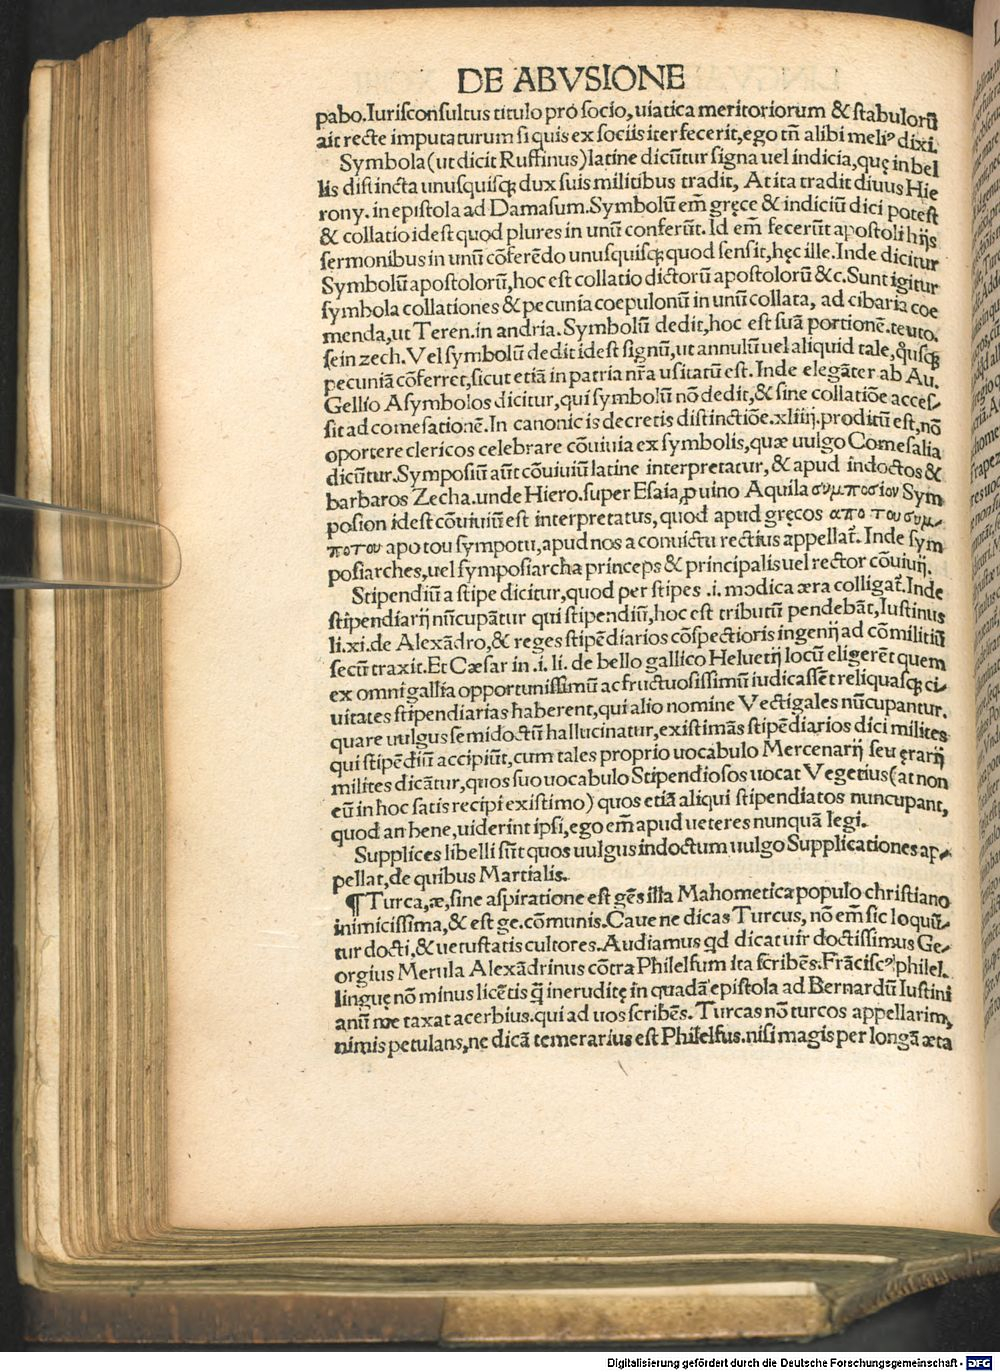 DE ABVSIONE
pabo.Iurisconsultus titulo pro socio, uiatica meritoriorum & stabulorũ
ait recte imputaturum si quis ex sociis iter fecerit,ego tñ alibi meliꝰ dixi.
Symbola(ut dicit Ruffinus)latine dicũtur signa uel indicia,quę in bel
lis distincta unusquisqꝫ dux suis militibus tradit, At ita tradit diuus Hie
rony. in epistola ad Damasum.Symbolũ em̃ gręce & indiciũ dici potest
& collatio idest quod plures in unũ conferũt. Id em̃ fecerũt apostoli hijs
sermonibus in unũ cõferẽdo unusquisqꝫ quod sensit,hęc ille. Inde dicitur
Symbolũ apostolorũ,hoc est collatio dictorũ apostolorũ &c.Sunt igitur
symbola collationes & pecunia coepulonũ in unũ collata, ad cibaria coe
menda,ut Teren.in andria.Symbolũ dedit,hoc est suã portionẽ.teuto.
sein zech.Vel symbolũ dedit idest signũ,ut annulũ uel aliquid tale,q̊usqꝫ
pecuniã cõferret,sicut etiã in patria nr̃a usitatũ est. Inde elegãter ab Au.
Gellio Asymbolos dicitur,qui symbolũ nõ dedit,& sine collatiõe acces⸗
sit ad comesationẽ.In canonicis decretis distinctiõe.xliiij.proditũ est,nõ
oportere clericos celebrare cõuiuia ex symbolis,quæ uulgo Comesalia
dicũtur.Symposiũ aũt cõuiuiũ latine interpretatur,& apud indoctos &
barbaros Zecha.unde Hiero.super Esaia,ꝓ uino Aquila συμποσιον Sym
posion idest cõuiuiũ est interpretatus, quod apud gręcos απο του συμ⸗
ποτου apo tou sympotu,apud nos a conuictu rectius appellat̃. Inde sym
posiarches,uel symposiarcha princeps & principalis uel rector cõuiuij.
Stipendiũ a stipe dicitur,quod per stipes .i. modica æra colligat̃.Inde
stipendiarij nũcupãtur qui stipendiũ,hoc est tributũ pendebãt,Iustinus
li.xi.de Alexãdro,& reges stipẽdiarios cõspectioris ingenij ad cõmilitiũ
secũ traxit.Et Cæsar in .i. li. de bello gallico Heluetij locũ eligerẽt quem
ex omni gallia opportunissimũ ac fructuosissimũ iudicassẽt reliquasqꝫ ci⸗
uitates stipendiarias haberent,qui alio nomine Vectigales nũcupantur.
quare uulgus semidoctũ hallucinatur,existimãs stipẽdiarios dici milites
qui stipẽdiũ accipiũt,cum tales proprio uocabulo Mercenarij seu ęrarij
milites dicãtur,quos suo uocabulo Stipendiosos uocat Vegetius(at non
eũ in hoc satis recipi existimo) quos etiã aliqui stipendiatos nuncupant,
quod an bene,uiderint ipsi,ego em̃ apud ueteres nunquã legi.
Supplices libelli sũt quos uulgus indoctum uulgo Supplicationes ap⸗
pellat,de quibus Martialis.
¶ Turca,æ,sine aspiratione est gẽs illa Mahometica populo christiano
inimicissima,& est ge.cõmunis.Caue ne dicas Turcus, nõ em̃ sic loquũ⸗
tur docti,& uetustatis cultores.Audiamus qd dicat uir doctissimus Ge⸗
orgius Merula Alexãdrinus cõtra Philelfum ita scribẽs.Frãciscꝰ philel.
linguę nõ minus licẽtis q̃ ineruditę in quadã epistola ad Bernardũ Iustini
anũ me taxat acerbius.qui ad uos scribẽs. Turcas nõ turcos appellarim,
nimis petulans,ne dicã temerarius est Philelfus.nisi magis per longã æta
Digitalisierung gefördert durch die Deutsche Forschungsgemeinschaft - DFG